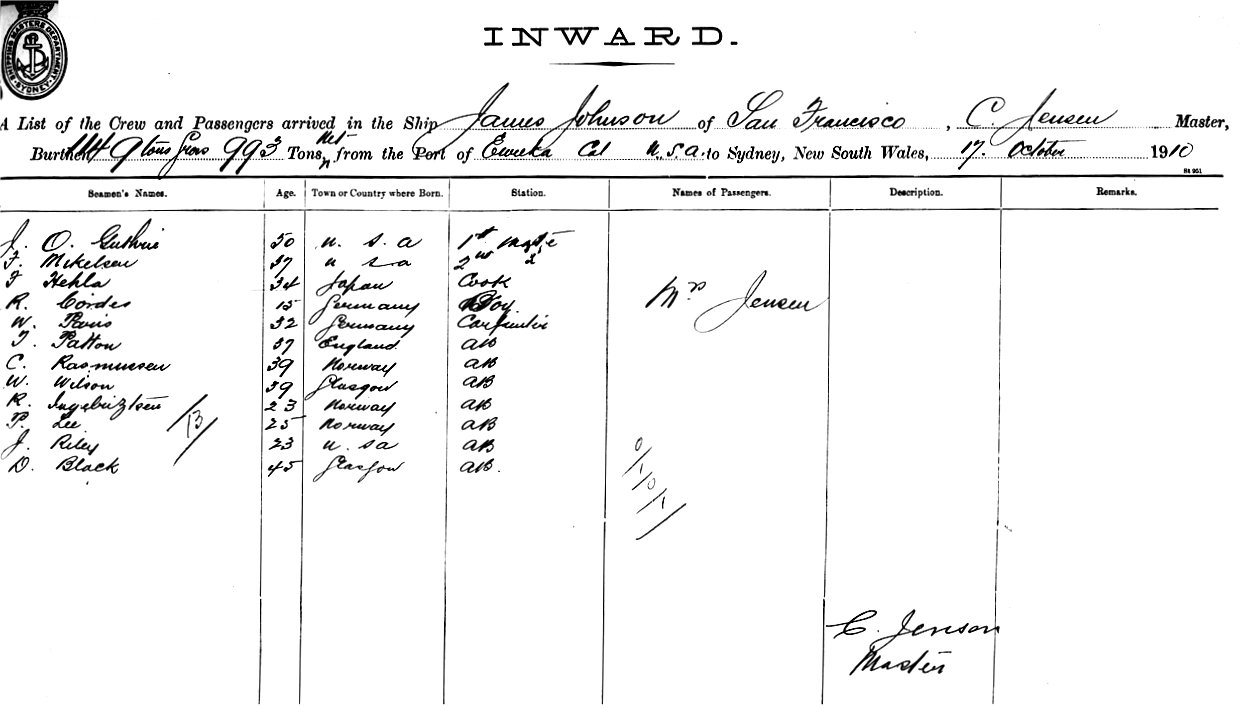 SHIPPING MASTERS DEPARTMENT SYDNEY
INWARD.
A List of the Crew and Passengers arrived in the Ship James Johnson of San Francisco, C. Jensen Master,
Burthen 9 tons Gross 993 Tons, Net from the Port of Eureka Cal U.S.A. to Sydney, New South Wales, 17. October 1910
St 951
Seamen's Names. Age. Town or Country where Born. Station. Names of Passengers. Description. Remarks.
J. O. Guthrie 50 U. S. A 1st Mate
F. Mikelsen 37 U S A 2nd "
F Hehla 34 Japan Cook
R. Cordes 15 Germany Boy
Mrs Jensen
W. 32 Germany Carpenter
T. Patton 37 England AB
C. Rasmussen 39 Norway AB
W. Wilson 39 Glasgow AB
R. Ingebriztsen 23 Norway AB
P. Lee 25 Norway AB
/13/
J. Riley 23 U. S A AB
D. Black 45 Glasgow AB.
C. Jenson
Master